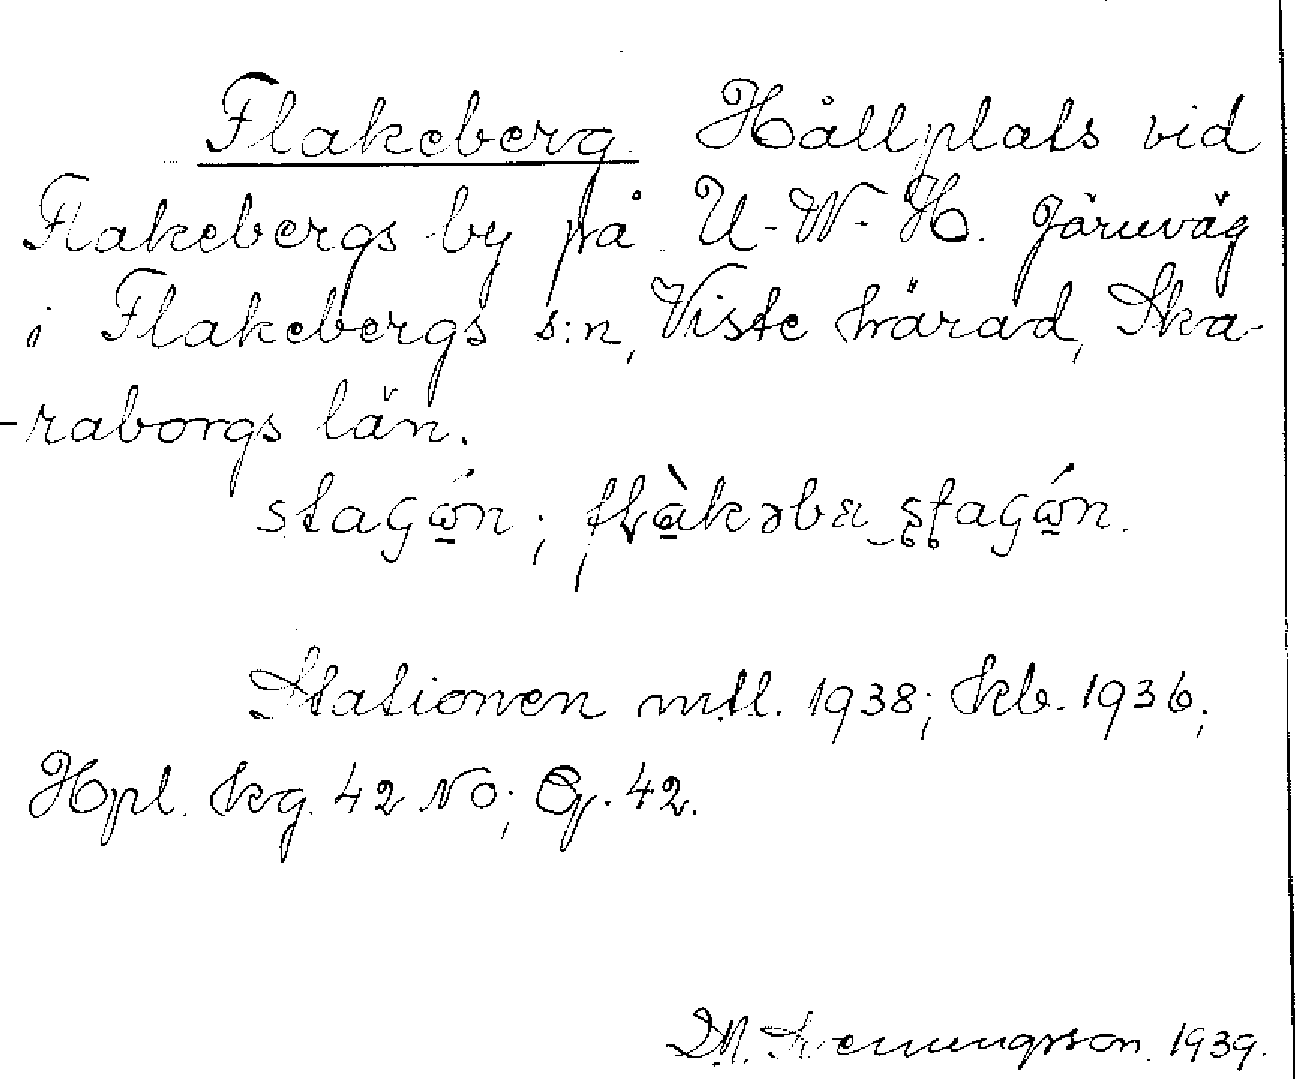 Flakeberg. Hållplats vid
Flakebergs by på U-W-H. Järnväg
i Flakebergs s:n, Viste härad, Ska-
-raborgs län.
staGώ̲n; flὰkəbæ staGώ̲n.
Stationen mtl. 1938; tkb. 1936;
Hpl. kg. 42 NO; 42.
1939.